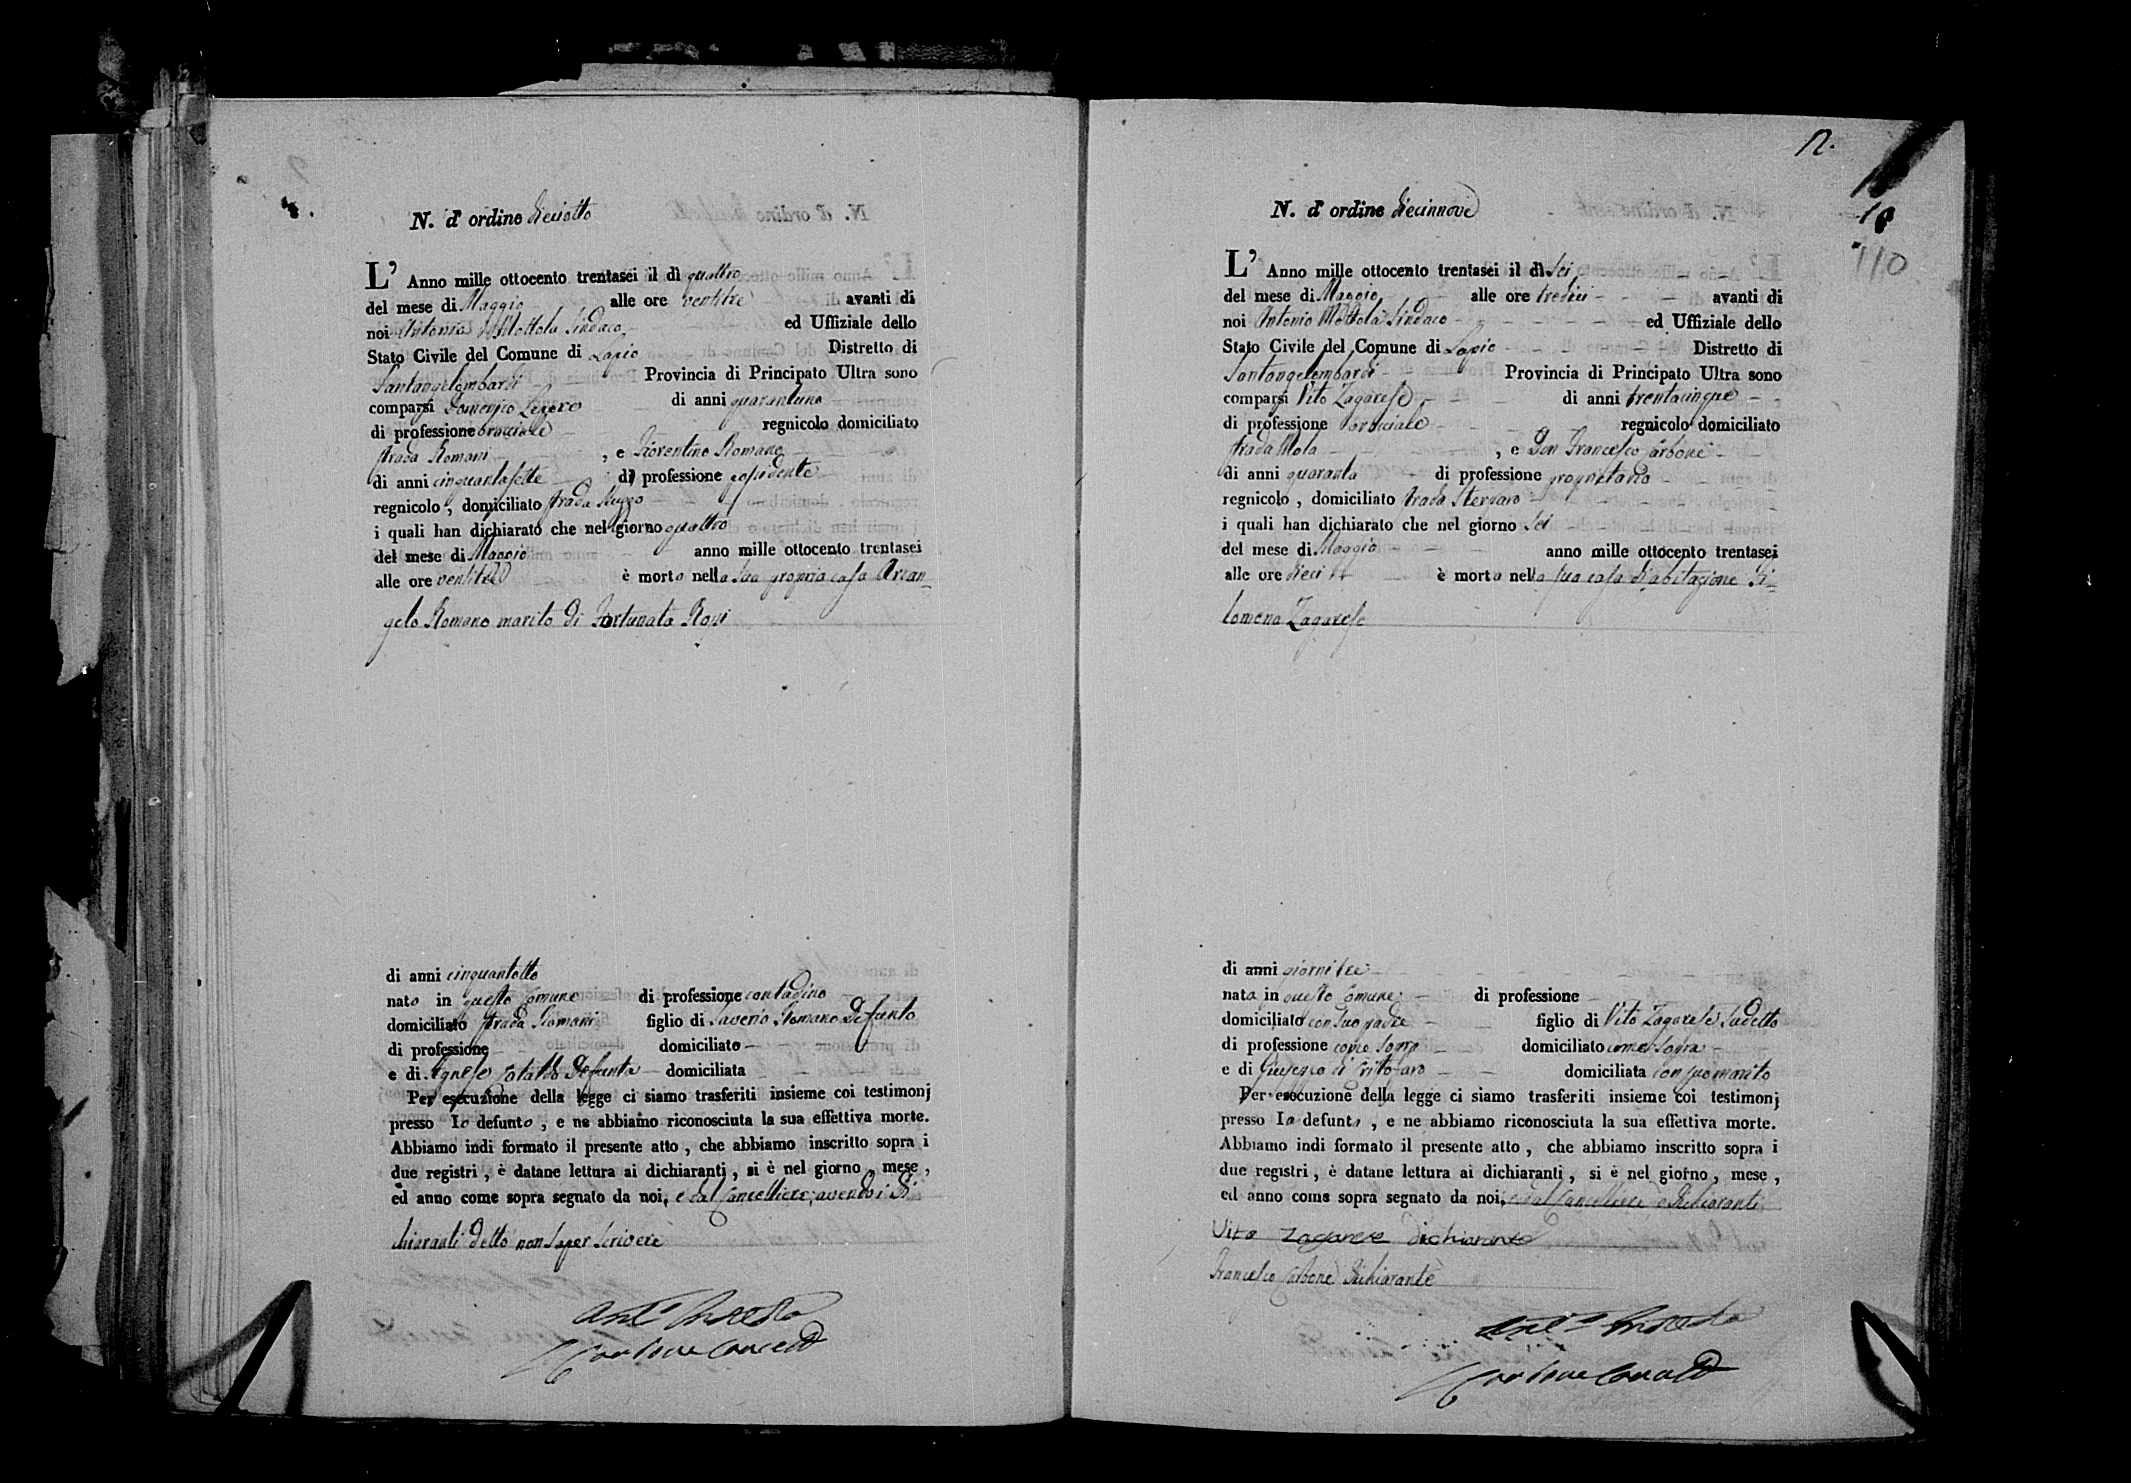 N. d' ordine dieciotto
L' Anno mille ottocento trentasei il dì quattro
del mese di Maggio alle ore ventitre avanti di
noi Antonio Mottola Sindaco ed Uffiziale dello
Stato Civile del Comune di Lapio Distretto di
Santangelombardi Provincia di Principato Ultra sono
comparsi Domenico di anni quarantuno
di professione bracciale regnicolo domiciliato
strada Romani , e Fiorentino Romano
di anni cinquantasette di professione possidente
regnicolo , domiciliato strada
i quali han dichiarato che nel giorno quattro
del mese di Maggio anno mille ottocento trentasei
alle ore ventitre è morto nella sua propria casa Arcan-
gelo Romano marito di Fortunata Rossi
di anni cinquantotto
nato in questo Comune di professione contadino
domiciliato strada Romani figlio di Saverio Romano defunto
di professione domiciliato
e di Agnese Cataldo defunta domiciliata
Per esecuzione della legge ci siamo trasferiti insieme coi testimonj
presso lo defunto , e ne abbiamo riconosciuta la sua effettiva morte.
Abbiamo indi formato il presente atto , che abbiamo inscritto sopra i
due registri , è datane lettura ai dichiaranti , si è nel giorno , mese ,
ed anno come sopra segnato da noi, e dal Cancelliere, avendo i di
chiaranti detto non saper scrivere
N. d' ordine diecinnove
12.
110
L' Anno mille ottocento trentasei il dì sei
del mese di Maggio alle ore tredici avanti di
noi Antonio Mottola Sindaco ed Uffiziale dello
Stato Civile del Comune di Lapio Distretto di
Santangelombardi Provincia di Principato Ultra sono
comparsi Vito Zagarese di anni trentacinque
di professione bracciale regnicolo domiciliato
strada Mola , e Don Francesco Carbone
di anni quaranta di professione proprietario
regnicolo , domiciliato strada
i quali han dichiarato che nel giorno sei
del mese di Maggio anno mille ottocento trentasei
alle ore dieci è morta nella sua casa d'abitazione Fi-
lomena Zagarese
di anni giorni tre
nata in questo Comune di professione
domiciliato con suo padre figlio di Vito Zagarese sudetto
di professione come sopra domiciliato come sopra
e di Giuseppa di domiciliata con suo marito
Per esecuzione della legge ci siamo trasferiti insieme coi testimonj
presso la defunta , e ne abbiamo riconosciuta la sua effettiva morte.
Abbiamo indi formato il presente atto , che abbiamo inscritto sopra i
due registri , è datane lettura ai dichiaranti , si è nel giorno , mese ,
ed anno come sopra segnato da noi, e dal Cancelliere e dichiaranti
Vito Zagarese dichiarante
Francesco Carbone dichiarante